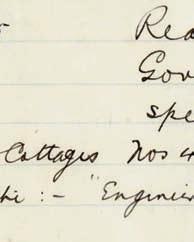 Rea
Gov
spe
Cottages Nos 4
hi :- "Enginee